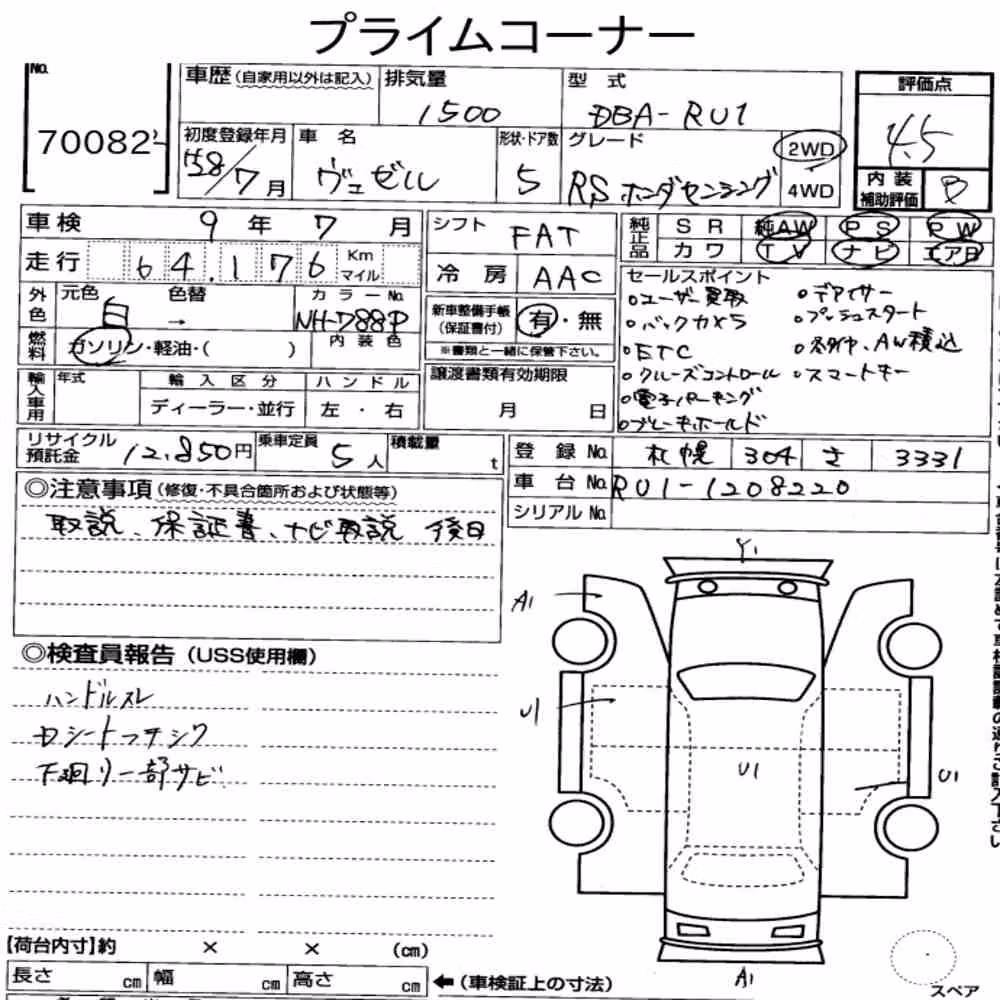 プライムコーナー
No.
70082
車歴(自家用以外は記入)
排気量
1500
型 式
DBA-RU1
評価点
4.5
初度登録年月
58/7月
車 名
ヴェゼル
形状・ドア数
5
グレード
RS ホンダセンシング
2WD
4WD
内 装
補助評価
B
車検
9年7月
シフト
FAT
純正品
S R
純AW
P S
P W
カワ
T V
ナビ
エアB
走行
64.176
Km
マイル
冷 房
AAC
セールスポイント
○ユーザー買取
○バックカメラ
○ETC
○クルーズコントロール
○電子パーキング
○ブレーキホールド
○デアイサー
○プッシュスタート
○冬タイヤ、AW積込
○スマートキー
外色
元色
白
色替
→
カラーNo.
NH-788P
新車整備手帳
(保証書付)
有・無
※書類と一緒に保管下さい。
燃料
ガソリン・軽油・( )
内 装 色
輸入車用
年式
輸 入 区 分
ハ ン ド ル
ディーラー・並行
左 ・ 右
譲渡書類有効期限
月 日
リサイクル
預託金
12,850円
乗車定員
5人
積載量
t
登 録 No.
札幌
304
さ
3331
車 台 No.
RU1-1208220
シリアル No.
◎注意事項(修復・不具合箇所および状態等)
取説、保証書、ナビ取説 後日
◎検査員報告(USS使用欄)
ハンドルスレ
Dシート
下廻り一部サビ
Y1
A1
U1
U1
U1
A1
スペア
【荷台内寸】約 × × (cm)
長さ cm
幅 cm
高さ cm
←(車検証上の寸法)